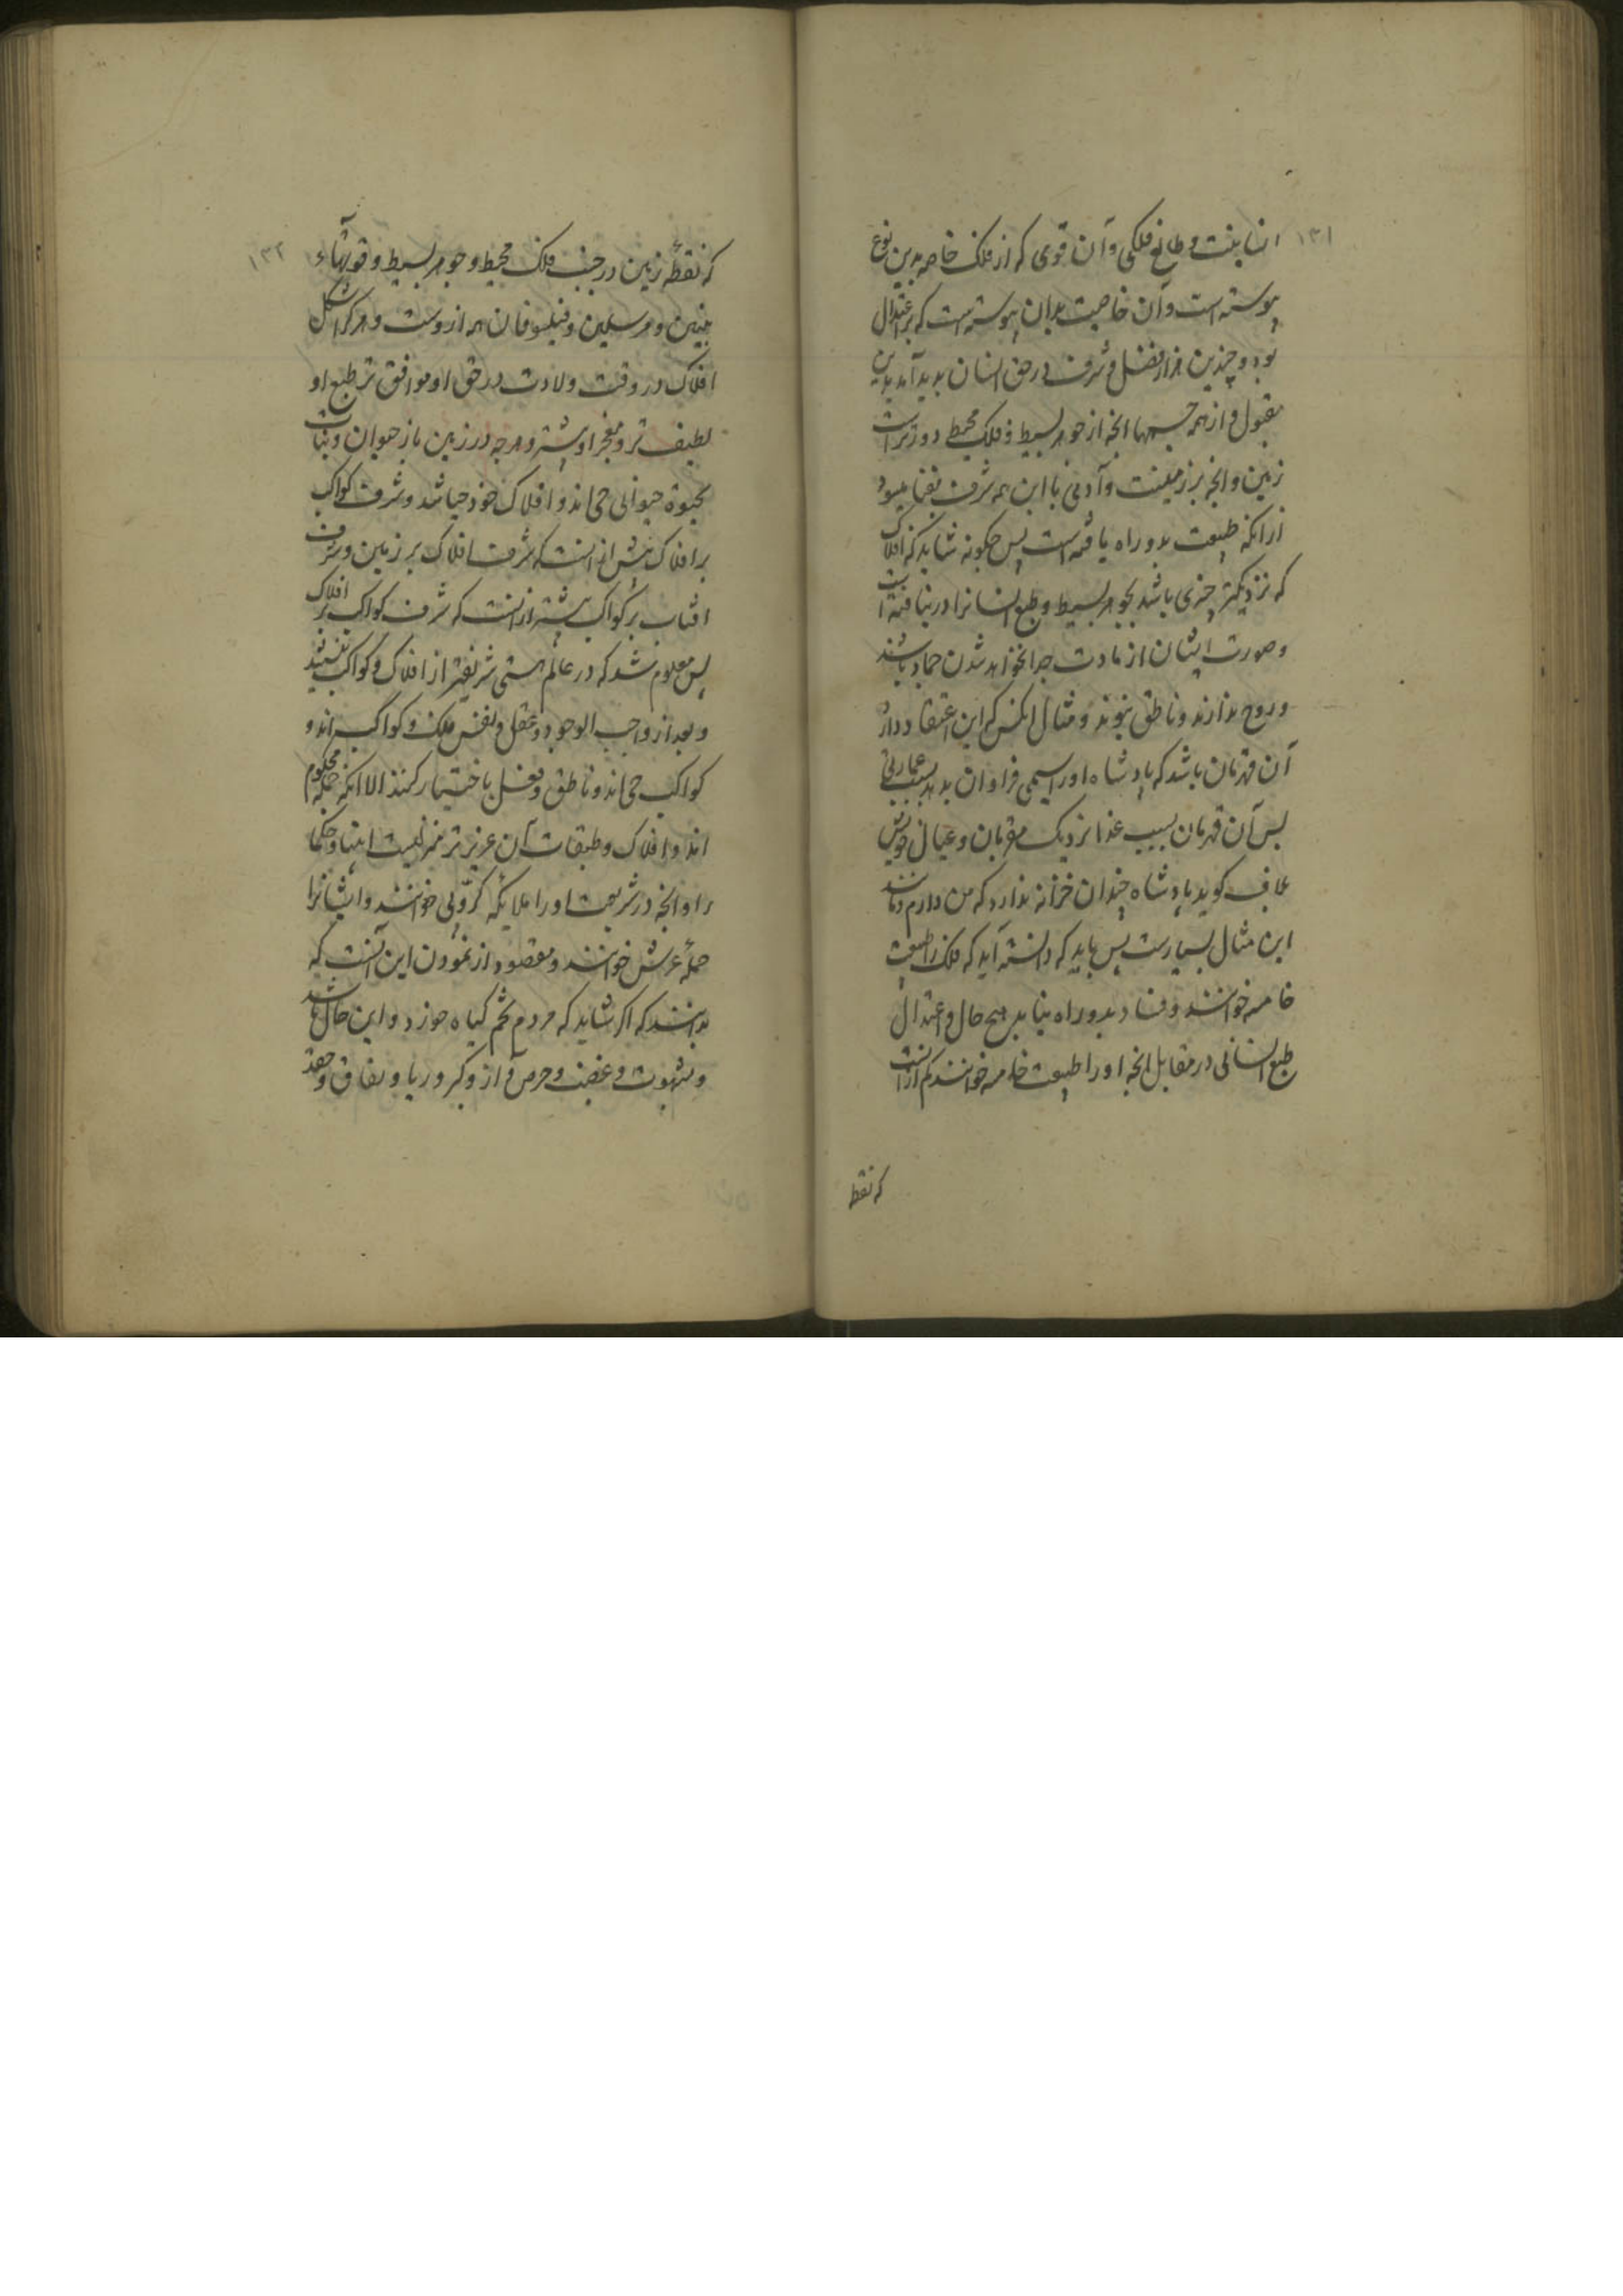 ۱۳۱
انسانیست و طالع فلکی و آن قوی که از فلک خاصه بدین نوع
پیوسته است و آن خاصیت بدان پیوسته است که بر اعتدال
بود و چندین هزار فضل و شرف در حق انسان بدید آمد بدین
مقبول و از همه جسمها انچه از جوهر بسیط و فلک محیط دورتر است
زمین و انچه بر زمینست و آدمی با این همه شرف بفنا میشود
از انکه طبیعت بدو راه یافته است پس چکونه شاید که افلاک
که نزدیکتر چیزی باشد بجوهر بسیط و طبع انسانرا در نیافته است
و صورت ایشان از مادت جدا نخواهد شدن جماد باشند
و روح ندارند و ناطق نبوند و مثال انکس که این اعتقاد دارد
آن قهرمان باشد که پادشاه او را سیمی فراوان بدهد بسبب عمارتی
پس آن قهرمان بسبب غذا نزدیک مقربان و عیال خویش
بلاف کوید پادشاه چندان خزانه ندارد که من دارم و مانند
این مثال بسیارست پس باید که دانسته آید که فلک را طبیعت
خامسه خوانند و فساد بدو راه نیابد بهیچ حال و اعتدال
طبع انسانی در مقابل انچه او را طبیعت خامسه خوانند کم از آنست
که نقط
۱۳۲
که نقطهٔ زمین در جنب فلک محیط و جوهر بسیط و قوتهاء
نبیین و مرسلین و فیلسوفان همه ازوست و هر کرا شکل
افلاک در وقت ولادت در حق او موافق تر طبع او
لطیف تر و مفخر او بیشتر و هر چه در زمین باز حیوان و نبات
بحیوة حیوانی حی اند و افلاک خود حیا شد و شرف کواکب
بر افلاک بیش از انست که شرف افلاک بر زمین و شرف
افتاب بر کواکب بیشتر از انست که شرف کواکب بر افلاک
پس معلوم شد که در عالم هستی شریفتر از افلاک و کواکب نیستند
و بعد از واجب الوجود و عقل و نفس ملک و کواکب اند و
کواکب حی اند و ناطق و فعل باختیار کنند الا انکه جمله محکوم
اند و افلاک و طبقات آن عزیز تر منزلیست انبیا و حکما
را و انچه در شریعت او را ملایکه کروبی خوانند و ایشانرا
حملهٔ عرش خوانند و مقصود از نمودن این آنست که
بدانند که اکر شاید که مردم تخم کیاه خورد و این حال باشد
و شهوت و غضب و حرص و از و کبر و ریا و نفاق و حقد